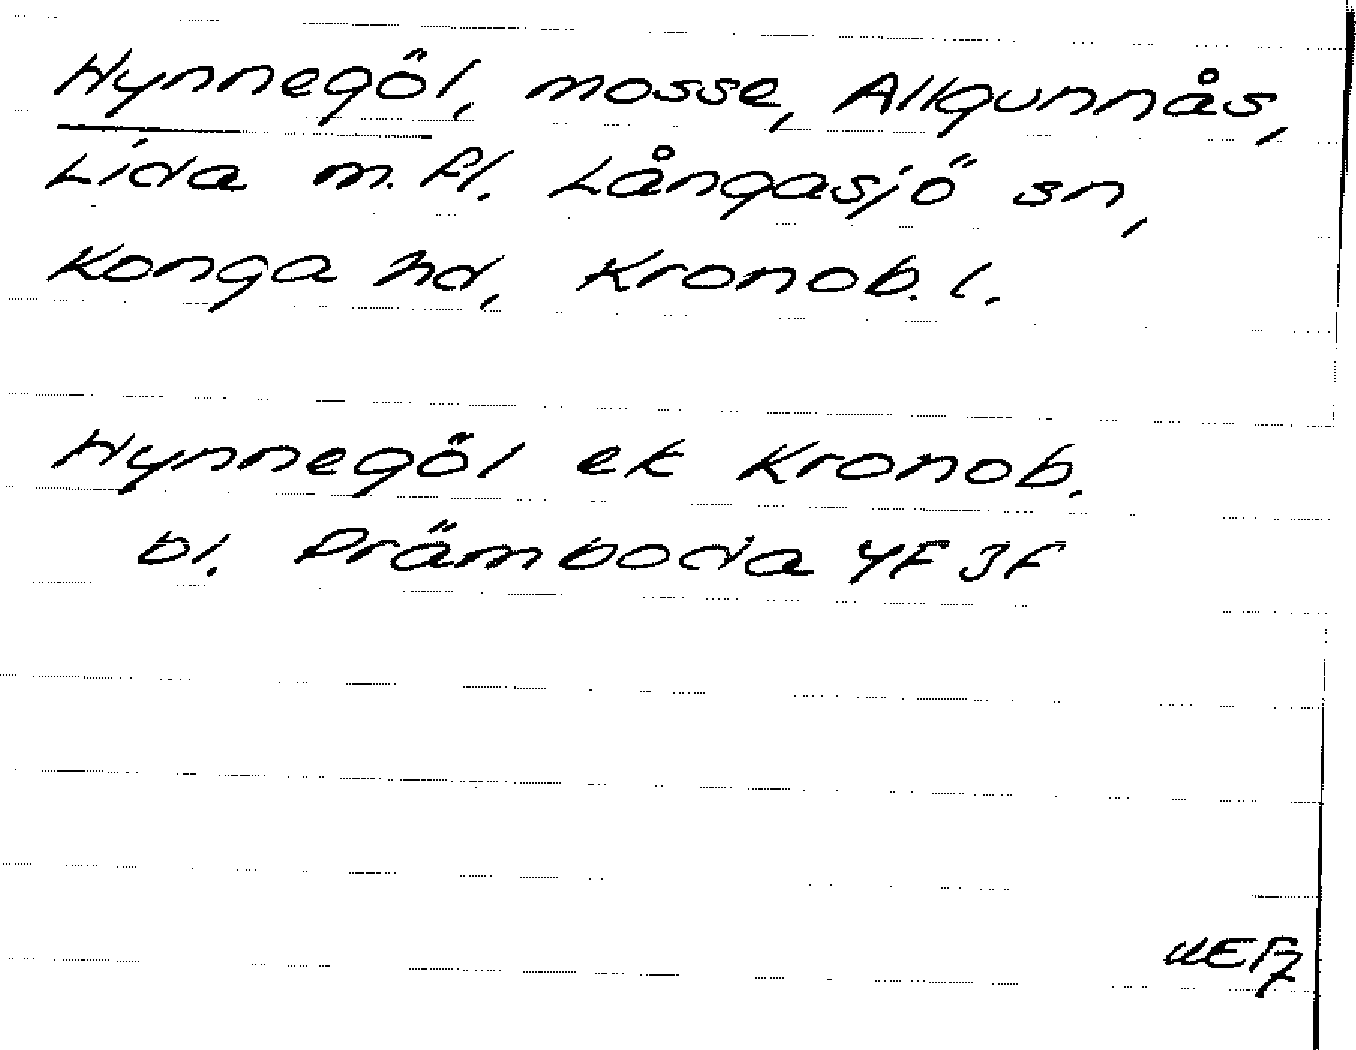 Hynnegöl, mosse, Allgunnås,
Lida m.fl. Långasjö sn,
Konga hd, Kronob. l.
Hynnegöl ek Kronob.
bl. Främboda 4F3f